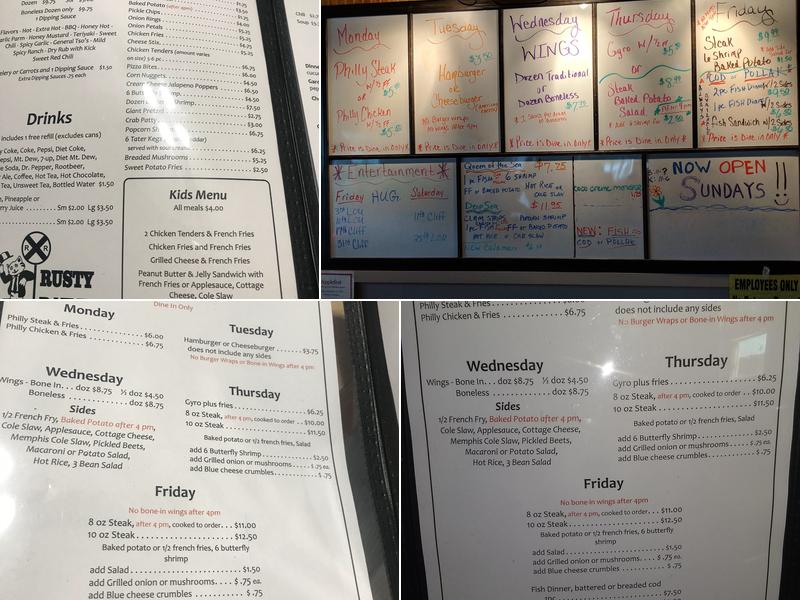 Dozen $9.75
Boneless Dozen only $9.75
1 Dipping Sauce
Flavors - Hot - Extra Hot - BBQ - Honey Hot -
Garlic Parm - Honey Mustard - Teriyaki - Sweet
Chili - Spicy Garlic - General Tso's - Mild
Spicy Ranch - Dry Rub with Kick
Sweet Red Chili
Celery or Carrots and 1 Dipping Sauce $1.50
Extra Dipping Sauce .75 each
Drinks
includes 1 free refill (excludes cans)
Coke, Coke, Pepsi, Diet Coke,
Pepsi, Mt. Dew, 7-up, Diet Mt. Dew,
Soda, Dr. Pepper, Rootbeer,
Ale, Coffee, Hot Tea, Hot Chocolate,
Tea, Unsweet Tea, Bottled Water $1.50
Pineapple or
Juice Sm $2.00 Lg $3.50
Sm $2.00 Lg $3.50
RUSTY
Baked Potato (after 4pm)
Pickle Chips
Onion Rings
Onion Petals
Chicken Fries
Cheese Stix
Chicken Tenders (amount varies
on size) 6 pc
Pizza Bites
Corn Nuggets
Cream Cheese Jalapeno Poppers
6 Butterfly Shrimp
Dozen Shrimp
Giant Pretzel
Crab Patty
Popcorn
6 Tater Kegs
served with sour cream
Breaded Mushrooms $5.25
Sweet Potato Fries $2.50
Kids Menu
All meals $4.00
2 Chicken Tenders & French Fries
Chicken Fries and French Fries
Grilled Cheese & French Fries
Peanut Butter & Jelly Sandwich with
French Fries or Applesauce, Cottage
Cheese, Cole Slaw
Monday
Philly Steak
w/ FF
or
Philly Chicken
w/ FF
* Price is Dine in Only *
Tuesday
Hamburger
or
Cheeseburger
No Burger wraps
No wings after 4pm
* Price is Dine in Only *
Wednesday
WINGS
Dozen Traditional
or
Dozen Boneless
* Price is Dine in Only *
Thursday
Gyro w/ FF
or
Steak
Baked Potato
Salad
* Price is Dine in Only *
Friday
Steak
6 Shrimp
Baked Potato
COD or POLLACK
2pc Fish Dinner w/ 2 Sides
1pc Fish Dinner w/ 2 Sides
Fish Sandwich w/ 2 Sides
* Price is Dine in Only *
* Entertainment *
Friday HUG Saturday
17th Cliff
31st Cliff
11th Cliff
Queen of the Sea $7.25
1pc Fish 6 SHRIMP
FF or BAKED POTATO HOT RICE or
COLE SLAW
Deep Sea $11.95
CLAM STRIPS
NEW: FISH
COD or POLLACK
NOW OPEN
SUNDAYS !!
EMPLOYEES ONLY
Dine In Only
Monday
Philly Steak & Fries $6.00
Philly Chicken & Fries $6.75
Tuesday
Hamburger or Cheeseburger $3.75
does not include any sides
No Burger Wraps or Bone-in Wings after 4 pm
Wednesday
Wings - Bone In... doz $8.75 ½ doz $4.50
Boneless doz $8.75
Sides
1/2 French Fry, Baked Potato after 4 pm,
Cole Slaw, Applesauce, Cottage Cheese,
Memphis Cole Slaw, Pickled Beets,
Macaroni or Potato Salad,
Hot Rice, 3 Bean Salad
Thursday
Gyro plus fries $6.25
8 oz Steak, after 4 pm, cooked to order ... $10.00
10 oz Steak $11.50
Baked potato or 1/2 french fries, Salad
add 6 Butterfly Shrimp $2.50
add Grilled onion or mushrooms $ .75 ea.
add Blue cheese crumbles $ .75
Friday
No bone in wings after 4pm
8 oz Steak, after 4 pm, cooked to order... $11.00
10 oz Steak $12.50
Baked potato or 1/2 french fries, 6 butterfly
shrimp
add Salad $1.50
add Grilled onion or mushrooms.... $ .75 ea.
add Blue cheese crumbles $ .75
Philly Steak & Fries
Philly Chicken & Fries $6.75
does not include any sides
No Burger Wraps or Bone-in Wings after 4 pm
Wednesday
Wings - Bone In... doz $8.75 ½ doz $4.50
Boneless doz $8.75
Sides
1/2 French Fry, Baked Potato after 4 pm,
Cole Slaw, Applesauce, Cottage Cheese,
Memphis Cole Slaw, Pickled Beets,
Macaroni or Potato Salad,
Hot Rice, 3 Bean Salad
Thursday
Gyro plus fries $6.25
8 oz Steak, after 4 pm, cooked to order ... $10.00
10 oz Steak $11.50
Baked potato or 1/2 french fries, Salad
add 6 Butterfly Shrimp $2.50
add Grilled onion or mushrooms $ .75 ea.
add Blue cheese crumbles $ .75
Friday
No bone in wings after 4pm
8 oz Steak, after 4 pm, cooked to order... $11.00
10 oz Steak $12.50
Baked potato or 1/2 french fries, 6 butterfly
shrimp
add Salad $1.50
add Grilled onion or mushrooms.... $ .75 ea.
add Blue cheese crumbles $ .75
Fish Dinner, battered or breaded cod
1pc $7.50